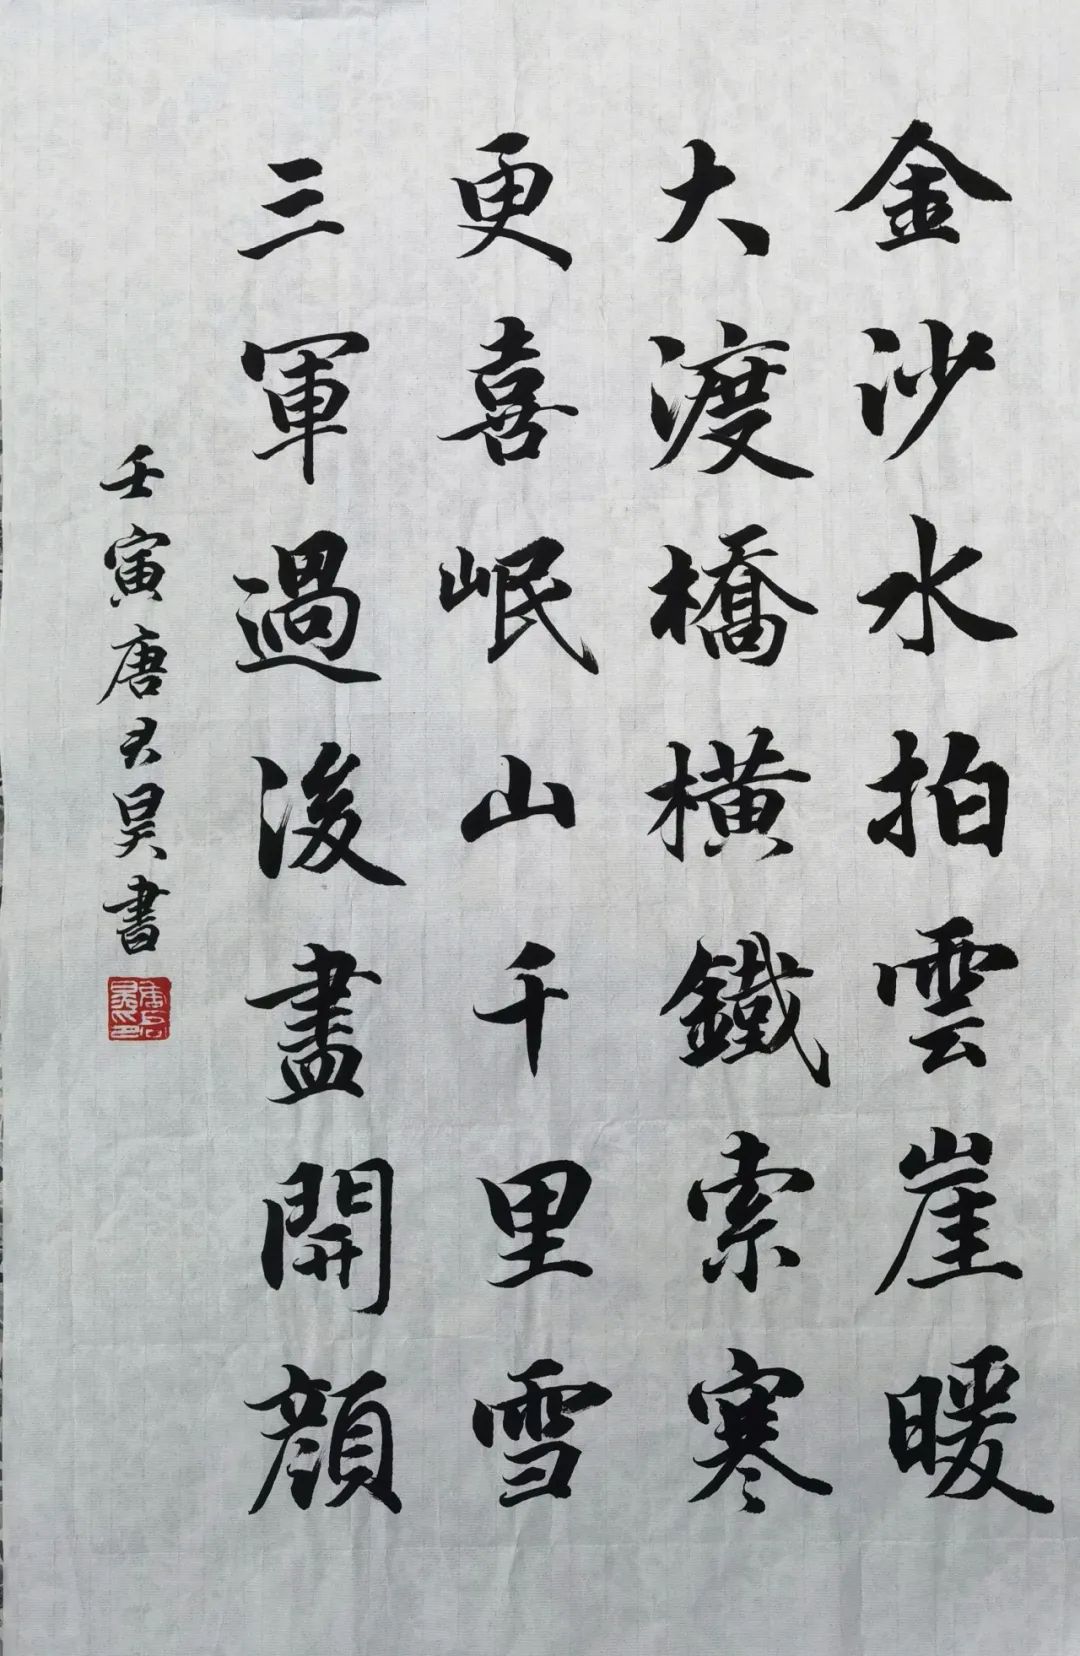 金沙水拍雲崖暖
大渡橋橫鐵索寒
更喜岷山千里雪
三軍過後盡開顏
壬寅唐君昊書